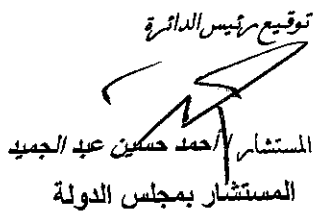 توقيع رئيس الدائرة
المستشار / أحمد حسين عبد الجميد
المستشار بمجلس الدولة